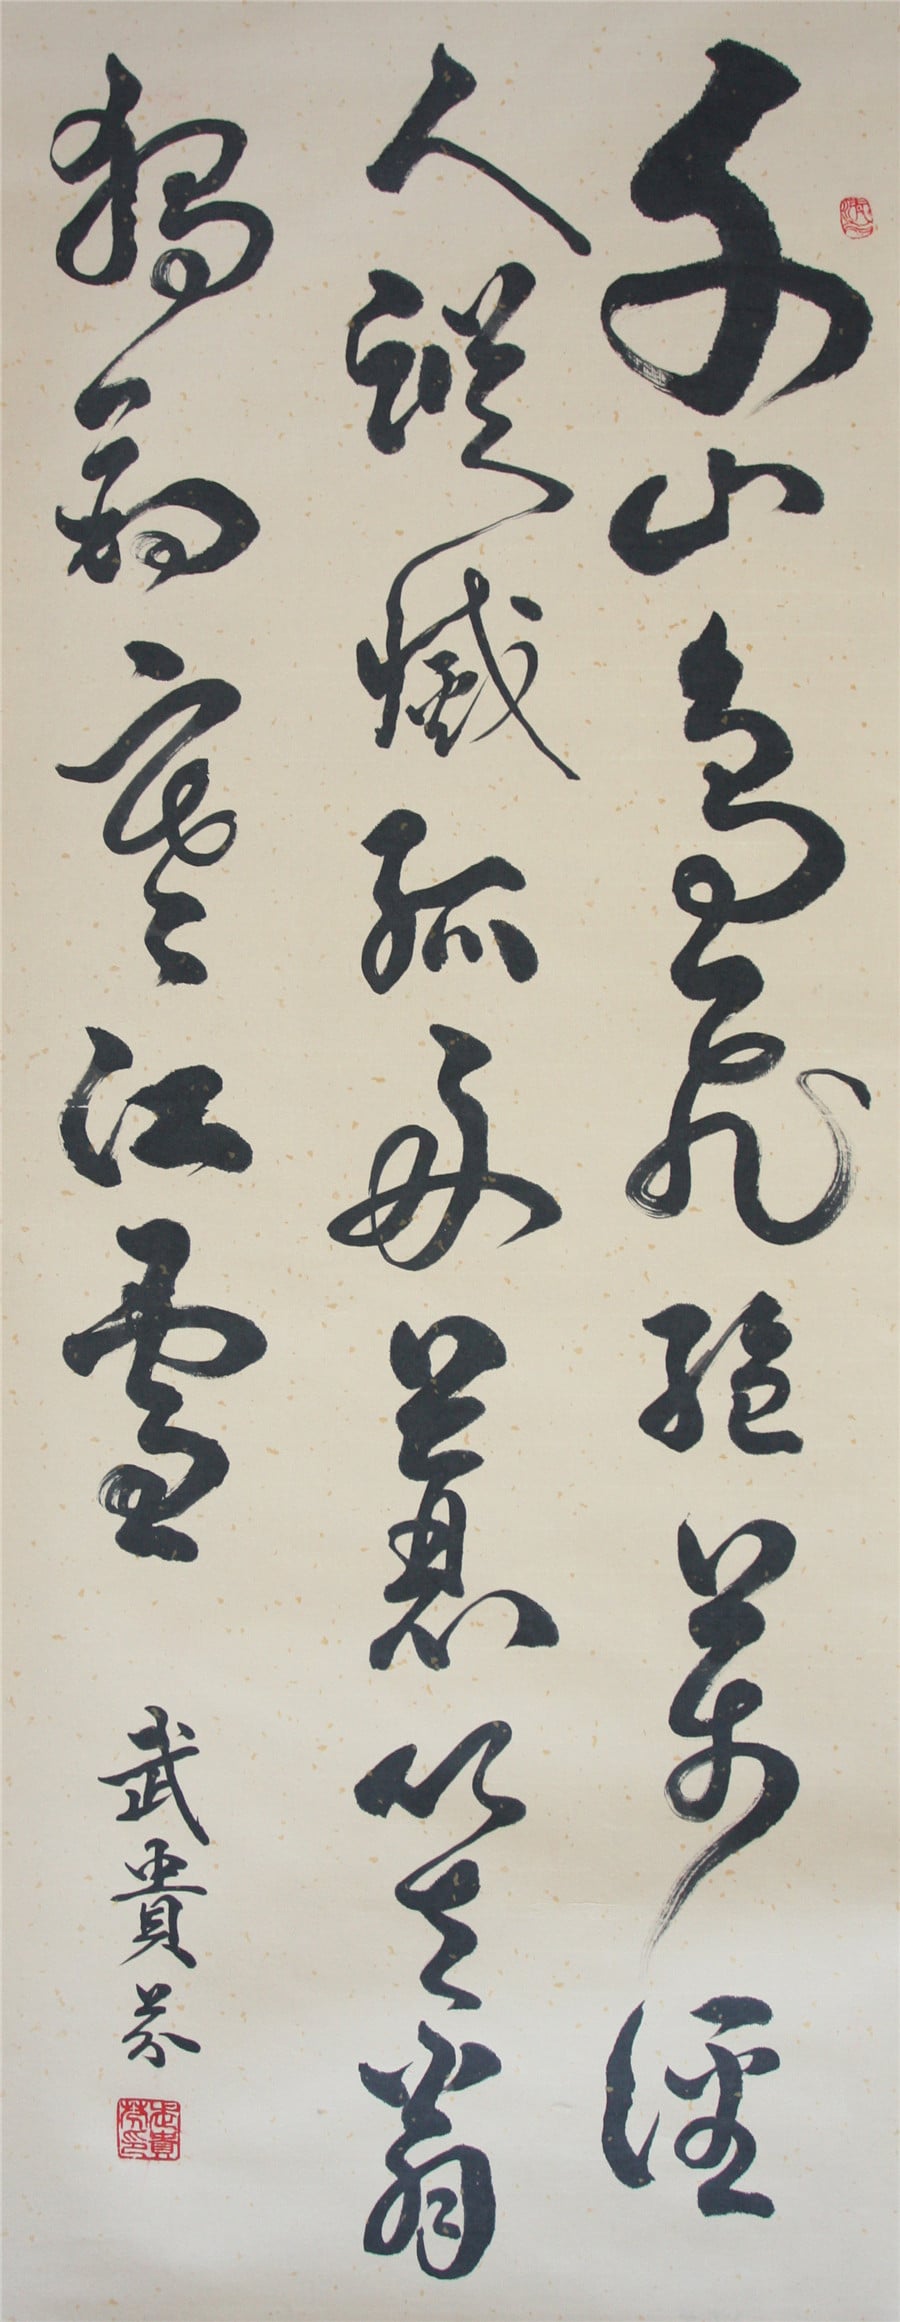 千山鳥飛絕萬徑
人蹤滅孤舟蓑笠翁
獨釣寒江雪
武貴芬
武貴芬印